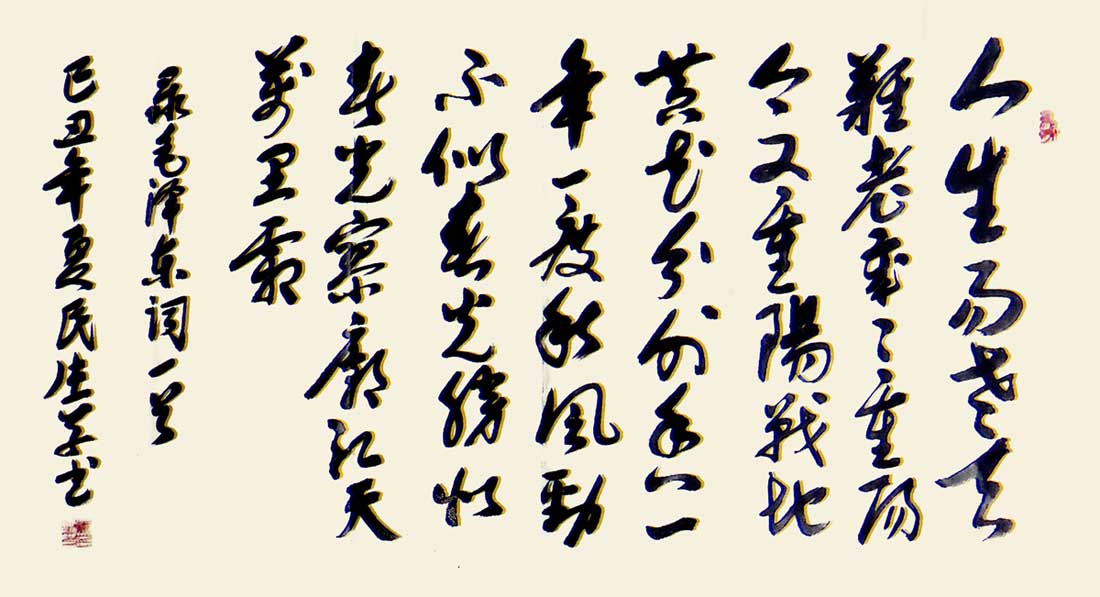 人生易老天
難老歲々重陽
今又重陽戰地
黄花分外香一
年一度秋風勁
不似春光勝似
春光寥廓江天
萬里霜
录毛泽东词一首
己丑年夏民生草书